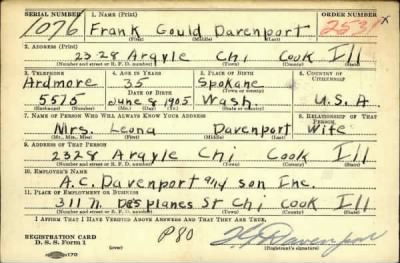 SERIAL NUMBER 1. NAME (Print) ORDER NUMBER
1076 Frank Gould Davenport 2531 x
(First) (Middle) (Last)
2. ADDRESS (Print)
2328 Argyle Chi Cook Ill
(Number and street or R. F. D. number) (Town) (County) (State)
3. TELEPHONE 4. AGE IN YEARS 5. PLACE OF BIRTH 6. COUNTRY OF CITIZENSHIP
Ardmore 35 Spokane
DATE OF BIRTH (Town or county)
5575 June 8 1905 Wash. U.S.A.
(Exchange) (Number) (Mo.) (Day) (Yr.) (State or country)
7. NAME OF PERSON WHO WILL ALWAYS KNOW YOUR ADDRESS 8. RELATIONSHIP OF THAT PERSON
Mrs. Leona Davenport Wife
(Mr., Mrs., Miss) (First) (Middle) (Last)
9. ADDRESS OF THAT PERSON
2328 Argyle Chi Cook Ill
(Number and street or R. F. D. number) (Town) (County) (State)
10. EMPLOYER'S NAME
A.C. Davenport and son Inc.
11. PLACE OF EMPLOYMENT OR BUSINESS
311 N. Desplanes St Chi Cook Ill
(Number and street or R. F. D. number) (Town) (County) (State)
I AFFIRM THAT I HAVE VERIFIED ABOVE ANSWERS AND THAT THEY ARE TRUE.
REGISTRATION CARD
D. S. S. Form 1 P80 Davenport
(Registrant's signature)